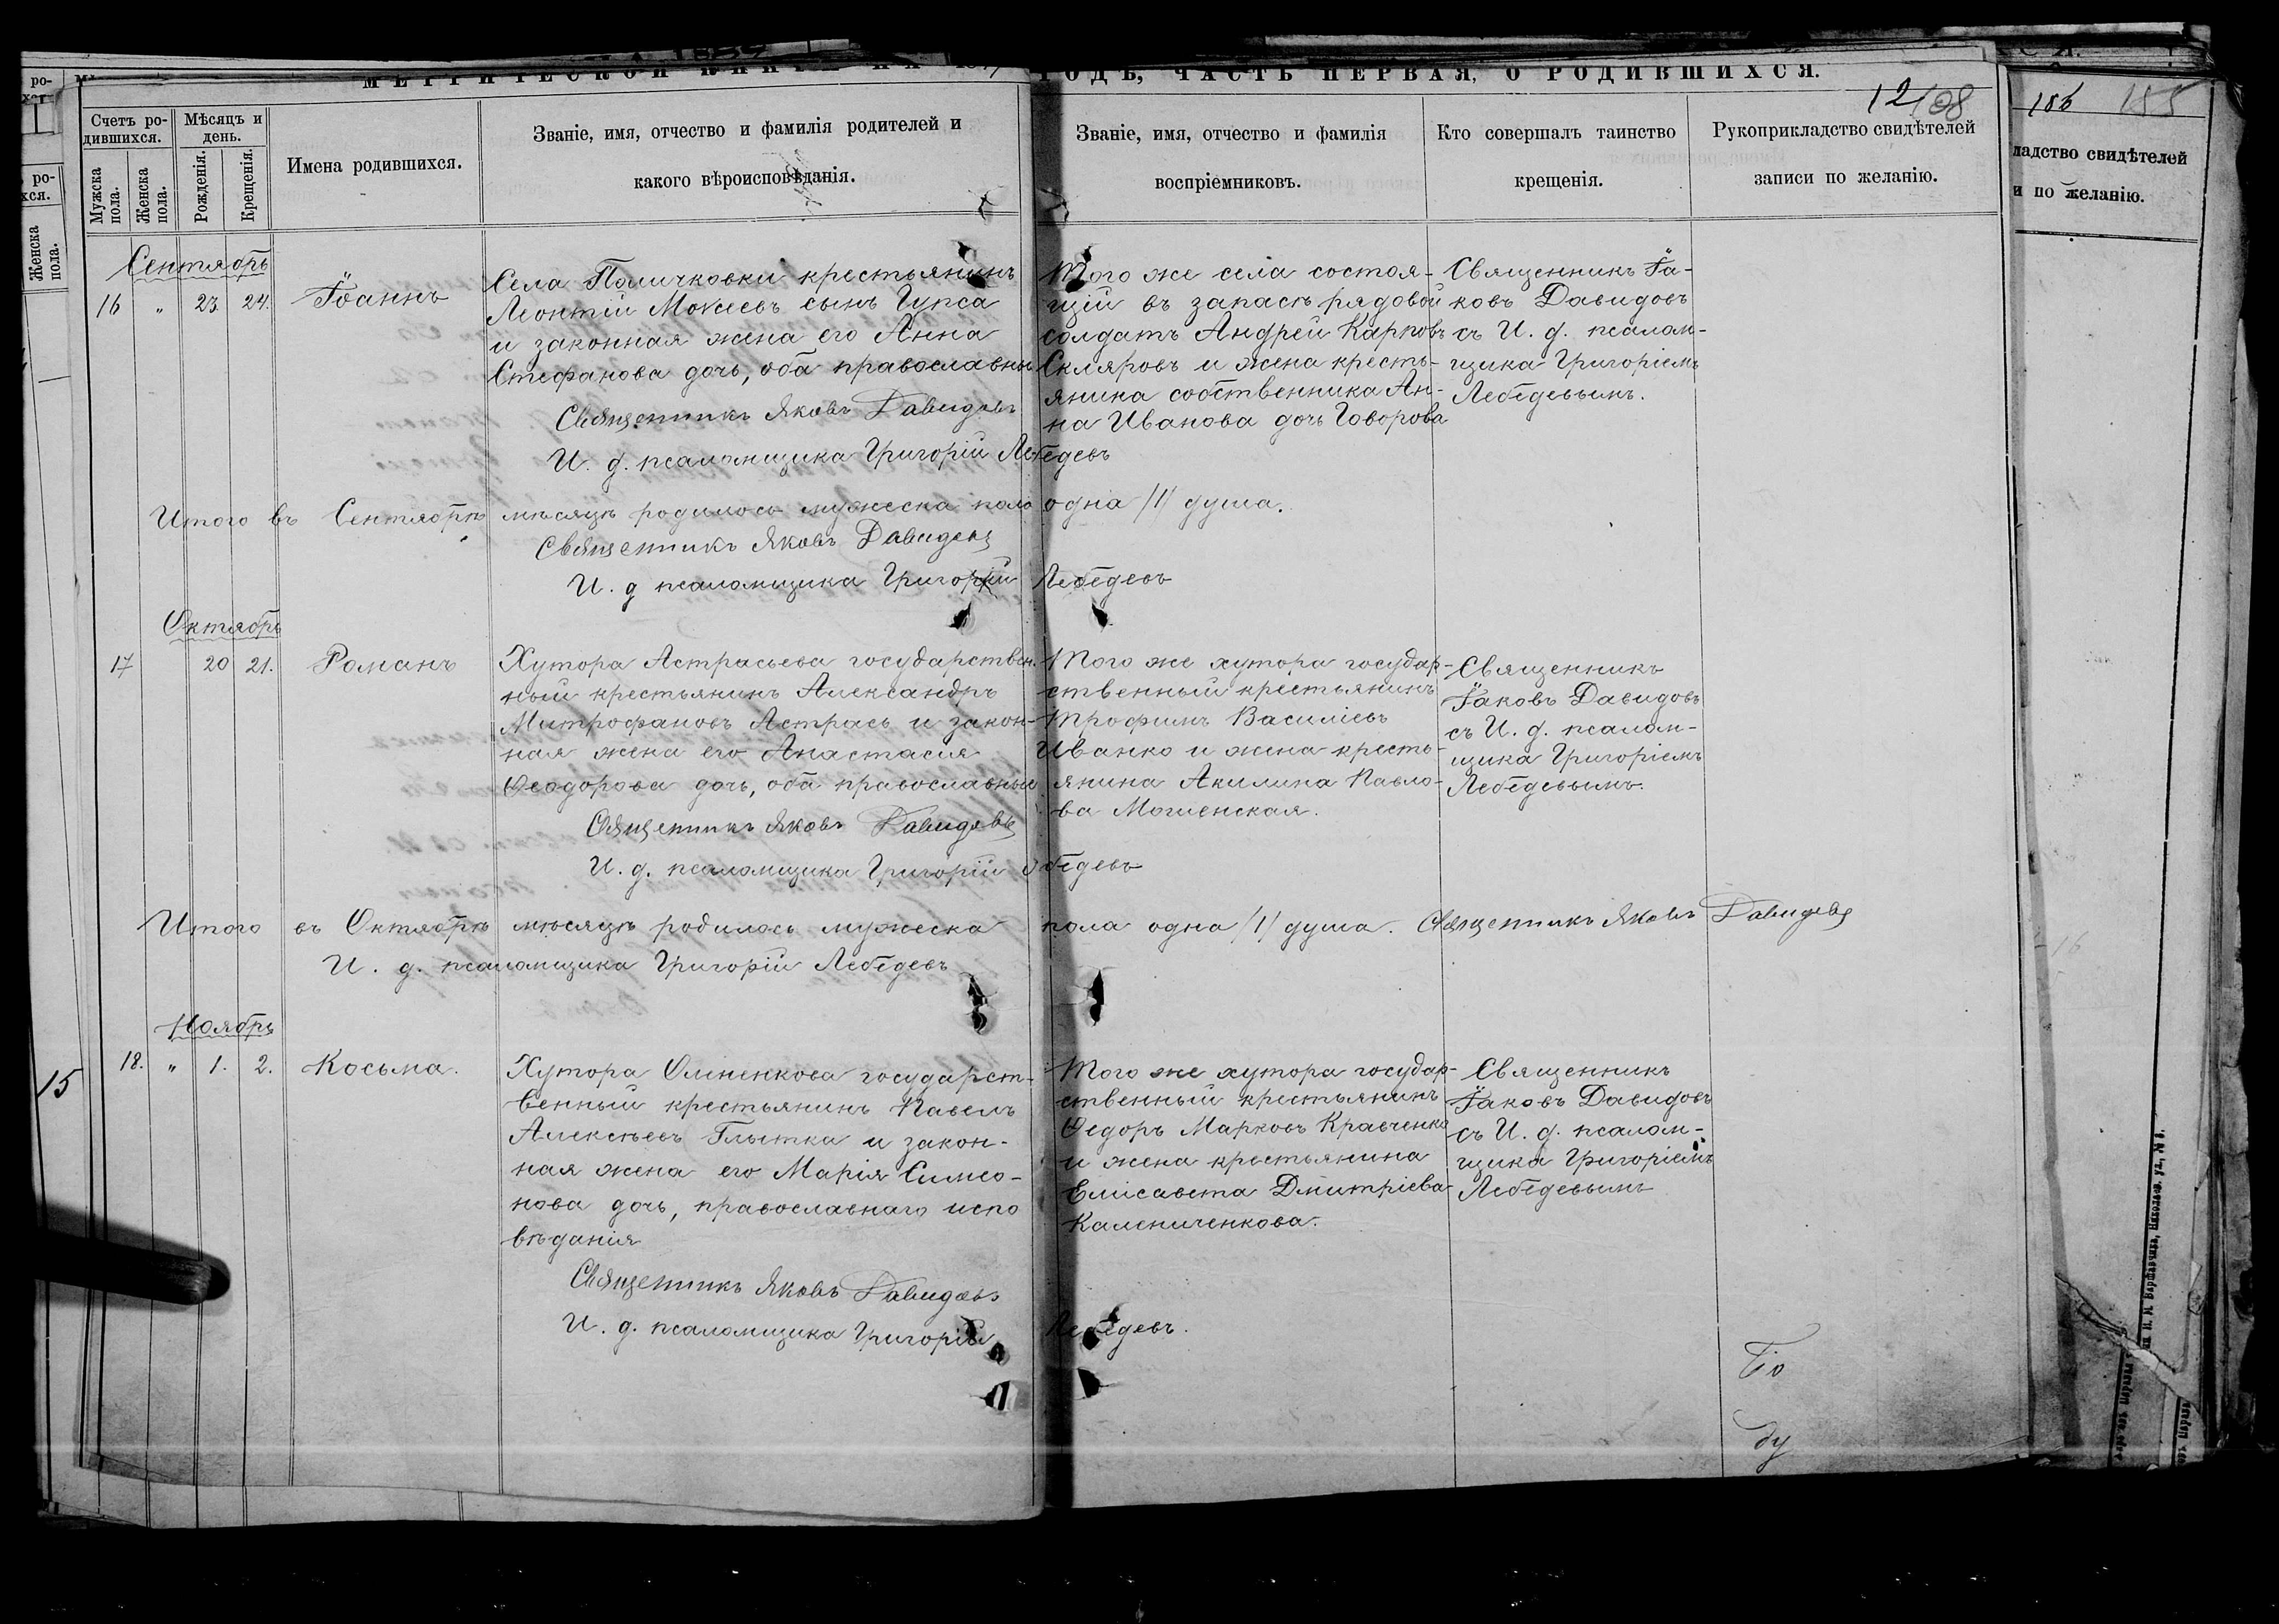 МЕТРИЧЕСКОЙ КНИГИ НА ГОДЪ, ЧАСТЬ ПЕРВАЯ, О РОДИВШИХСЯ.
12
108
186 155
Счетъ ро-
дившихся.
Мѣсяцъ и
день.
Мужска
пола.
Женска
пола.
Рожденія.
Крещенія.
Имена родившихся.
Званіе, имя, отчество и фамилія родителей и
какого вѣроисповѣданія.
Званіе, имя, отчество и фамилія
воспріемниковъ.
Кто совершалъ таинство
крещенія.
Рукоприкладство свидѣтелей
записи по желанію.
ладство свидѣтелей
и по желанію.
Женска
пола.
Сентябрь
16 " 23 24.
Іоаннъ
Села Поличковки крестьянинъ
Леонтій Мокіевъ сынъ Гупса
и законная жена его Анна
Стефанова дочь, оба православные
Священникъ Яковъ Давидовъ
И. д. псаломщика Григорій Лебедевъ
Того же села состоя-
щій въ запасѣ рядовой
солдатъ Андрей Карповъ
Скляровъ и жена кресть-
янина собственника Ан-
на Иванова дочь Говорова
Священникъ Іа-
ковъ Давидовъ
съ И. д. псалом-
щика Григоріемъ
Лебедевымъ.
Итого въ Сентябрѣ мѣсяцѣ родилось мужеска пола одна /1/ душа.
Священникъ Яковъ Давидовъ
И. д псаломщика Григорій Лебедевъ
Октябрь
17 20 21.
Романъ
Хутора Астрасьева государствен-
ный крестьянинъ Александръ
Митрофановъ Астрась и закон-
ная жена его Анастасія
Ѳеодорова дочь, оба православные
Священникъ Яковъ Давидовъ
И. д. псаломщика Григорій Лебедевъ
Того же хутора государ-
ственный крестьянинъ
Трофимъ Василіевъ
Иванко и жена кресть-
янина Акилина Павло-
ва Могиенская.
Священникъ
Іаковъ Давидовъ
съ И. д. псалом-
щика Григоріемъ
Лебедевымъ.
Итого въ Октябрѣ мѣсяцѣ родилось мужеска пола одна /1/ душа. Священникъ Яковъ Давидовъ
И. д. псаломщика Григорій Лебедевъ
Ноябрь
18. " 1. 2.
Косьма.
Хутора Олиненкова государст-
венный крестьянинъ Павелъ
Алексѣевъ Глытка и закон-
ная жена его Марія Симео-
нова дочь, православнаго испо
вѣданія
Священникъ Яковъ Давидовъ
И. д. псаломщика Григорій Лебедевъ.
Того же хутора государ-
ственный крестьянинъ
Ѳедоръ Марковъ Кравченко
и жена крестьянина
Елисавета Дмитріева
Калениченкова.
Священникъ
Іаковъ Давидовъ
съ И. д. псалом-
щика Григоріемъ
Лебедевымъ
15